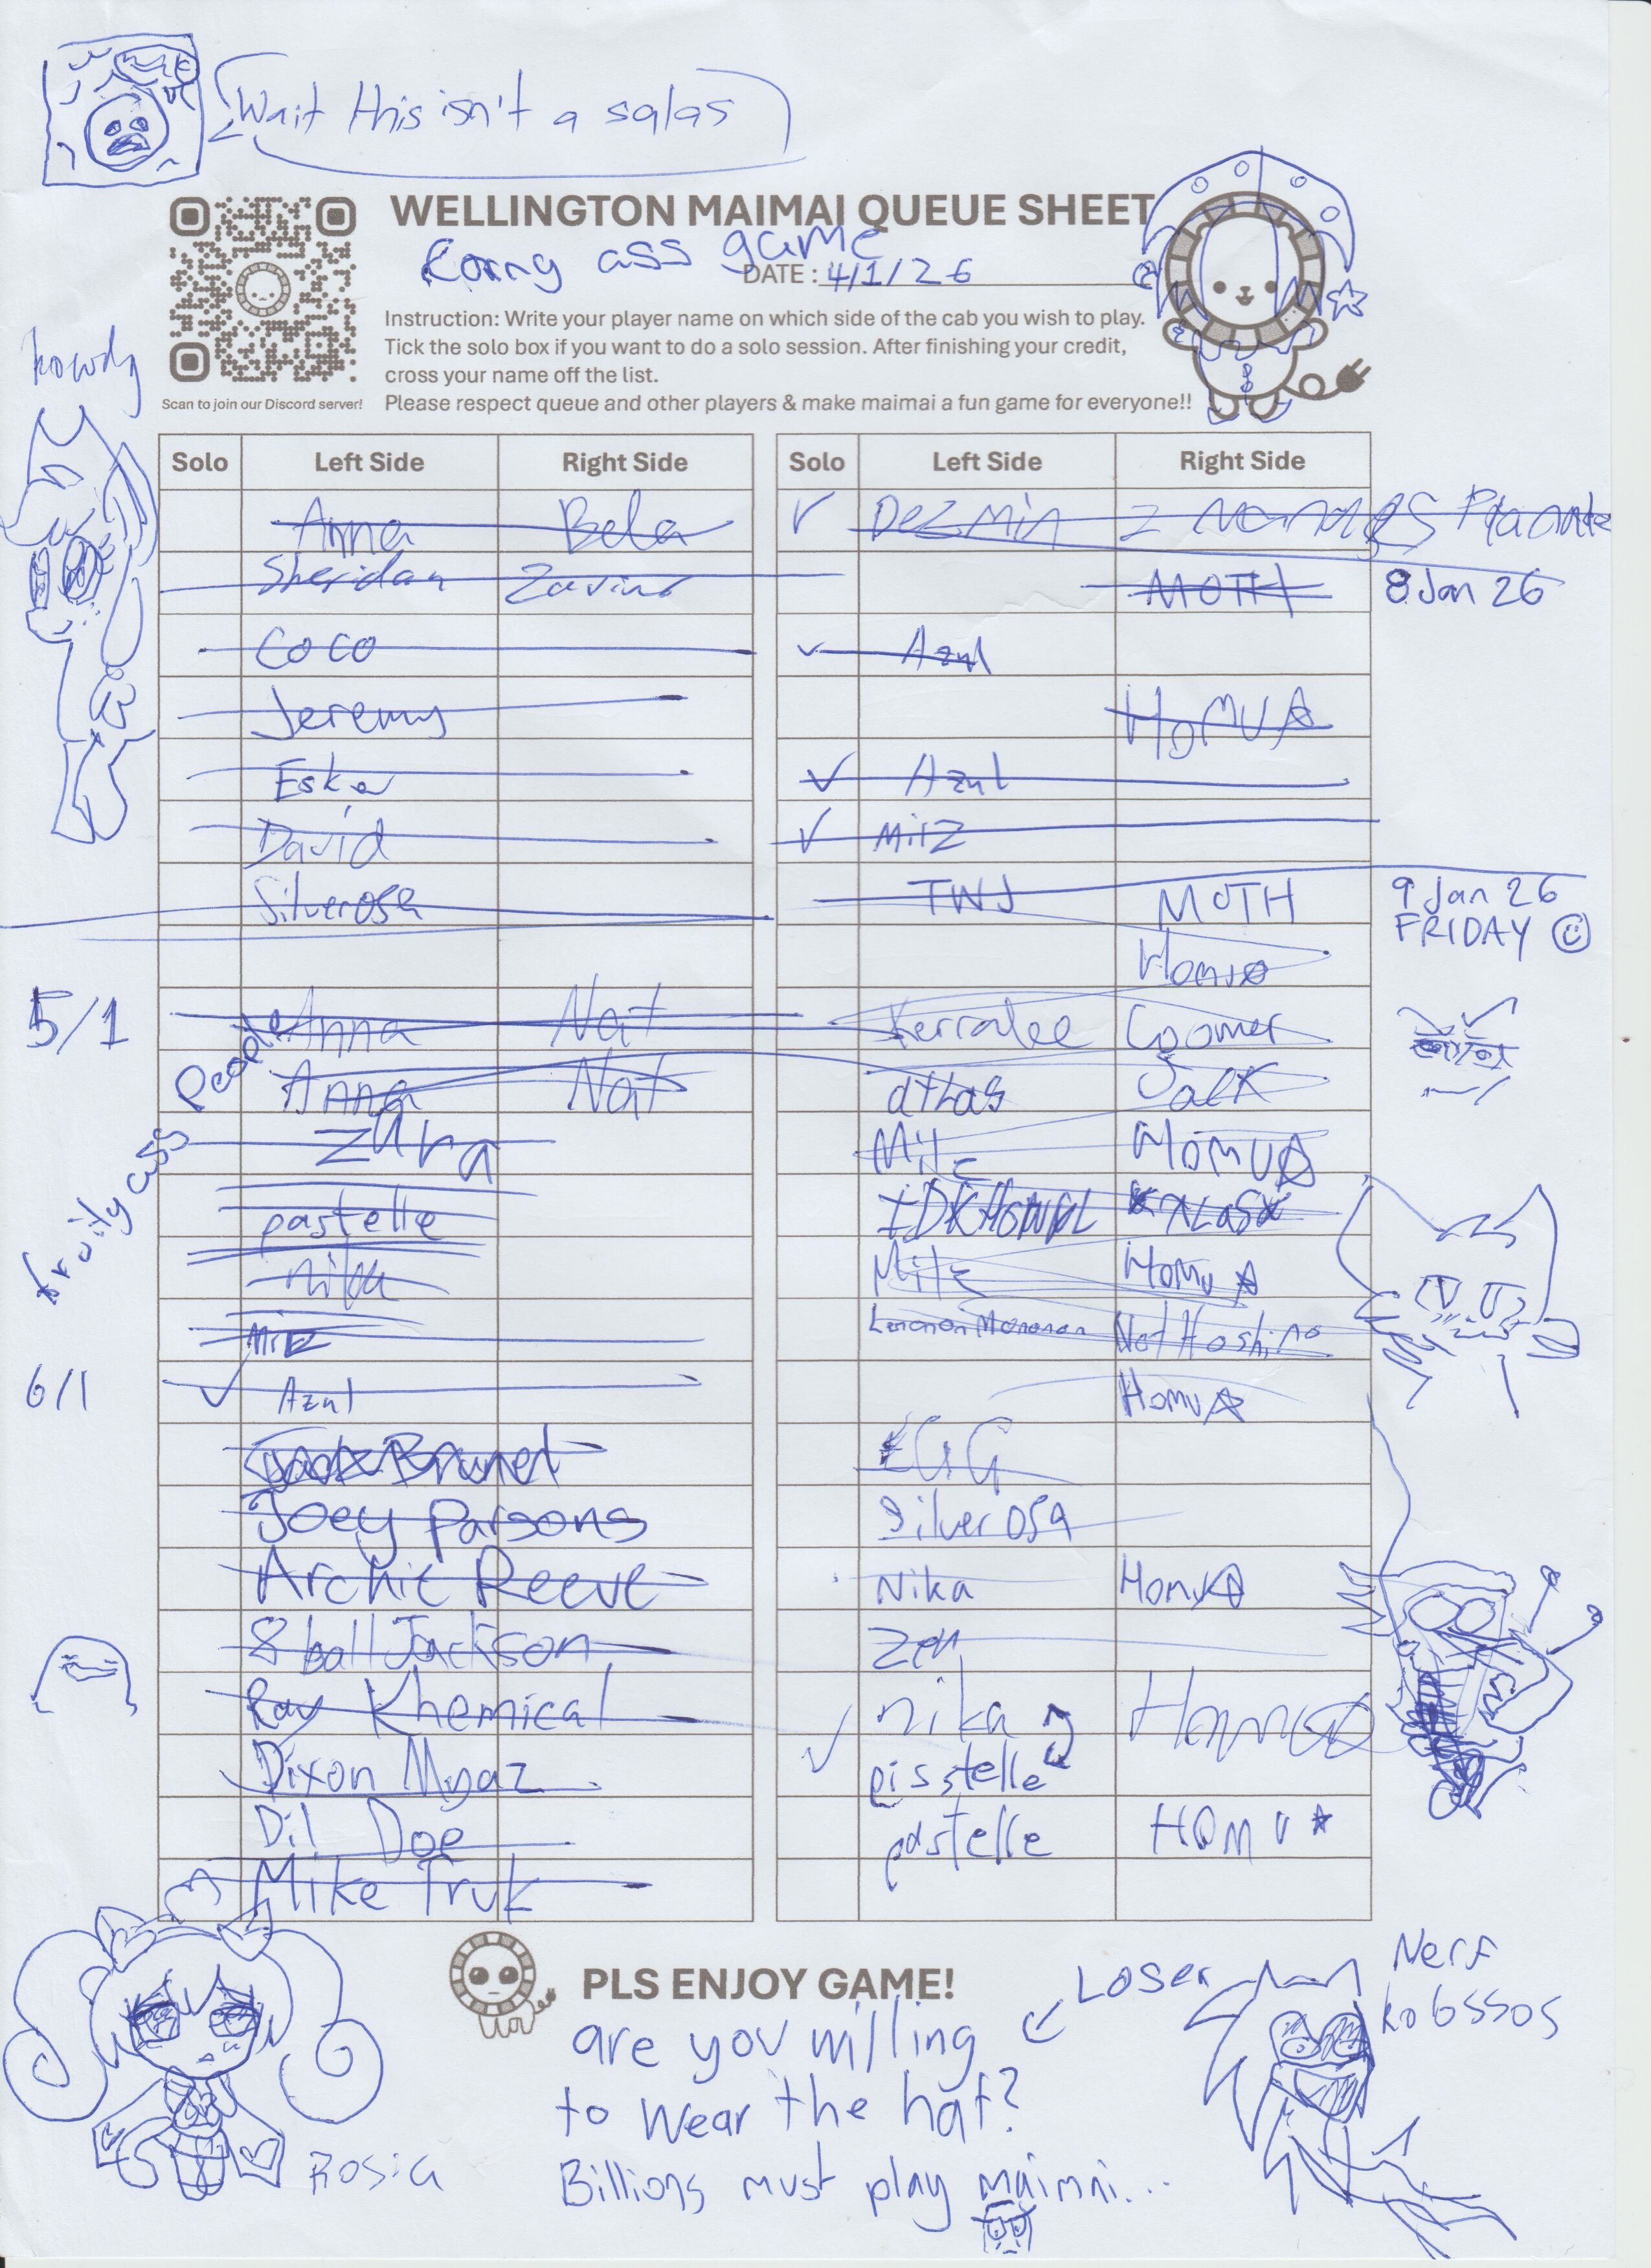 Wait this isn't a salas
WELLINGTON MAIMAI QUEUE SHEET
ass game
DATE: 4/1/26
Instruction: Write your player name on which side of the cab you wish to play.
Tick the solo box if you want to do a solo session. After finishing your credit,
cross your name off the list.
Please respect queue and other players & make maimai a fun game for everyone!!
Scan to join our Discord server!
howdy
Solo Left Side Right Side
Anna Bela
Sheridan
Coco
Jeremy
Eska
David
Silverosa
5/1
Anna Nat
Anna Nat
fruity ass people
zara
pastelle
nika
Mitz
6/1
Azul
Brunet
Joey Parsons
Archie Reeve
8 ball Jackson
Ray Khemical
Dixon Myaz
Dil Doe
Mike Truk
Solo Left Side Right Side
Dezmin
MOTH 8 Jan 26
Azul
HOMU☆
Azul
Mitz
TWJ MOTH
9 Jan 26
FRIDAY ☺
Homu☆
Kerralee Coomer
atlas Jalk
Mitz HOMU☆
Mitz HOMU☆
Not Hoshino
HOMU☆
EGG
Silverosa
Nika Homu☆
zen
nika Homu☆
pisstelle
pastelle HOMU☆
PLS ENJOY GAME!
are you willing
to wear the hat?
Billions must play maimai...
Loser
Nerf
kolossos
Rosia